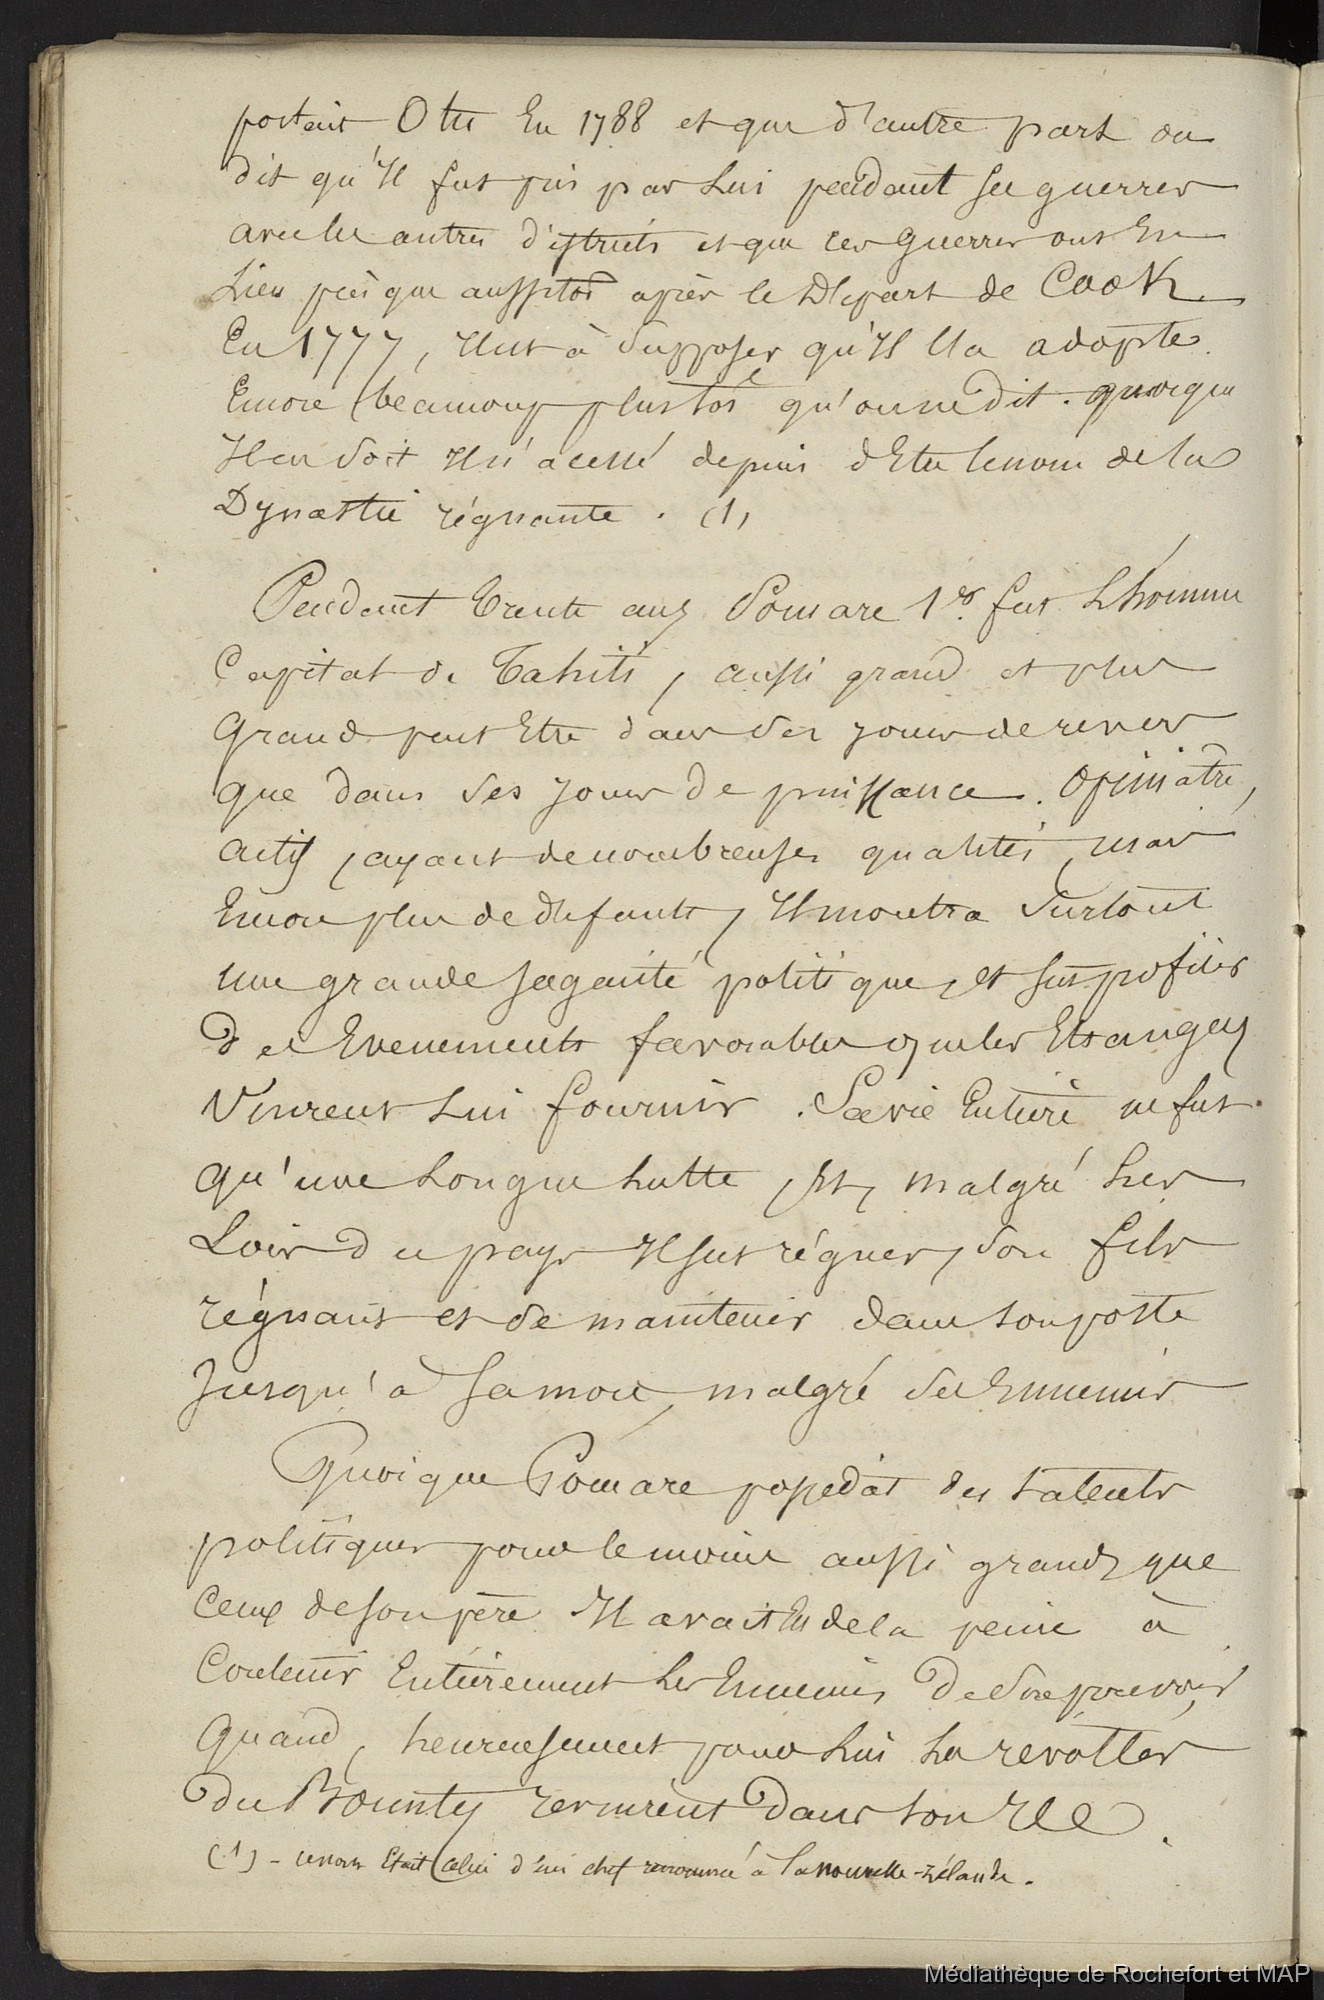 portait Otu En 1788 et que d'autre part on
dit qu'Il fut pris par Lui pendant ses guerres
avec les autres districts et que ces guerres ont Eu
Lieu presque aussitôt après le Départ de Cook
En 1777, Il est à Supposer qu'Il l'a adopté
Encore beaucoup plus tôt qu'on ne dit. quoique
Il en Soit Il n'a cessé depuis d'Etre le nom de la
Dynastie régnante. (1)
Pendant trente ans Pomare 1er. fut L'homme
Capital de Tahiti, aussi grand et plus
Grand peut Etre dans Ses jours de revers
que dans Ses jours de puissance. Opiniâtre,
actif, ayant de nombreuses qualités, mais
Encore plus de défauts, Il montra Surtout
une grande sagacité politique, et sut profiter
des Evenements favorables que les Etrangers
Vinrent Lui fournir. Sa vie Entière ne fut
qu'une Longue Lutte, Et, malgré Les
Lois du pays Il sut régner, Son fils
régnant et se maintenir dans son poste
Jusqu'à Sa mort, malgré Ses Ennemis
Quoique Pomare possedât des talents
politiques pour le moins aussi grands que
Ceux de son père Il avait Eu de la peine à
Contenir Entièrement Les Ennemis De Son pouvoir
Quand, heureusement pour Lui Les révoltés
du Bounty revinrent Dans son Ile.
(1) - ce nom Etait Celui d'un chef renommé à La nouvelle-zélande.
Médiathèque de Rochefort et MAP